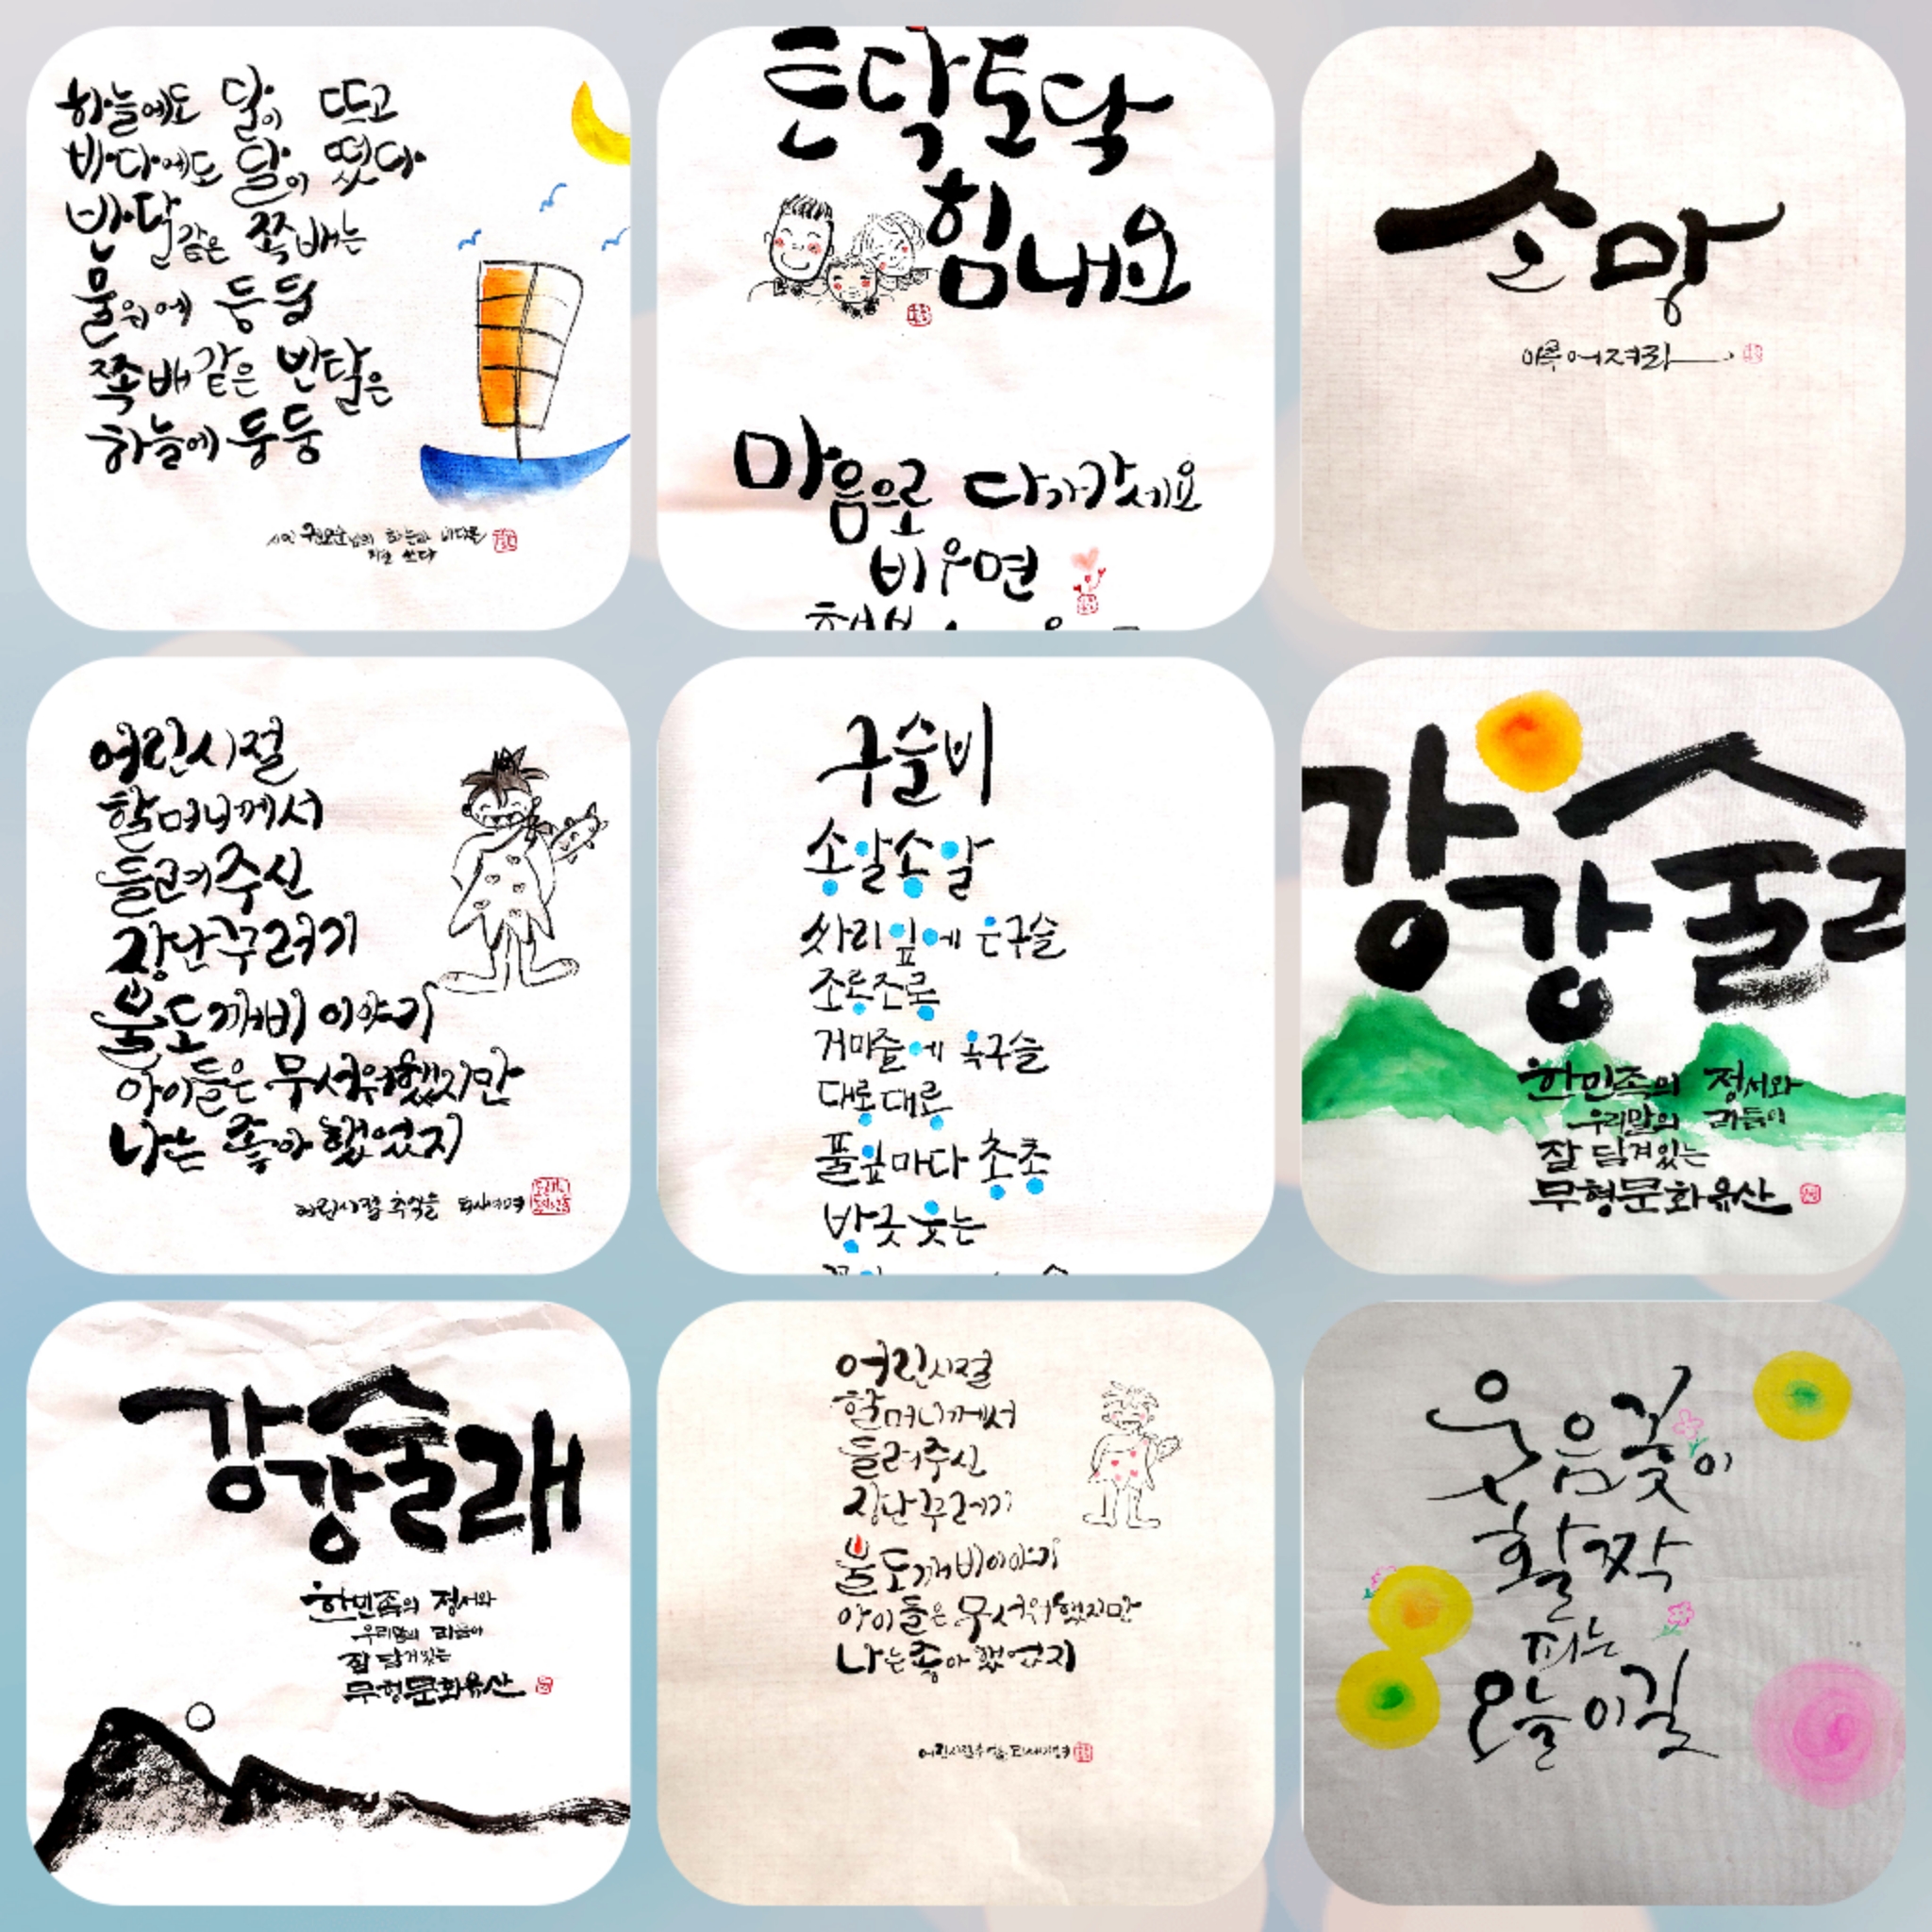 하늘에도 달이 뜨고
바다에도 달이 떴다
반달 같은 쪽배는
물위에 둥둥
쪽배 같은 반달은
하늘에 둥둥
시인 권오순님의 하늘과 바다를
쓰다
토닥토닥
힘내요
마음으로 다가가세요
비우면
소망
이루어져라
어린시절
할머니께서
들려주신
장난꾸러기
불도깨비 이야기
아이들은 무서워했지만
나는 좋아했었지
어린시절 추억을 되새기며
구슬비
송알송알
싸리잎에 은구슬
조롱조롱
거미줄에 옥구슬
대롱대롱
풀잎마다 총총
방긋웃는
강강술래
한민족의 정서와
우리말의 리듬이
잘 담겨있는
무형문화유산
강강술래
한민족의 정서와
우리말의 리듬이
잘 담겨있는
무형문화유산
어린시절
할머니께서
들려주신
장난꾸러기
불도깨비이야기
아이들은 무서워했지만
나는 좋아했었지
어린시절추억을 되새기며
웃음꽃이
활짝
피는
오늘이길